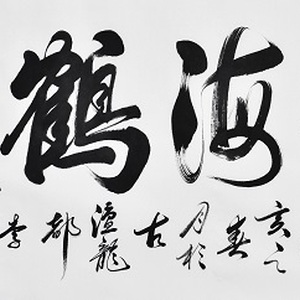 海鶴
亥之春月於古澶龍都李